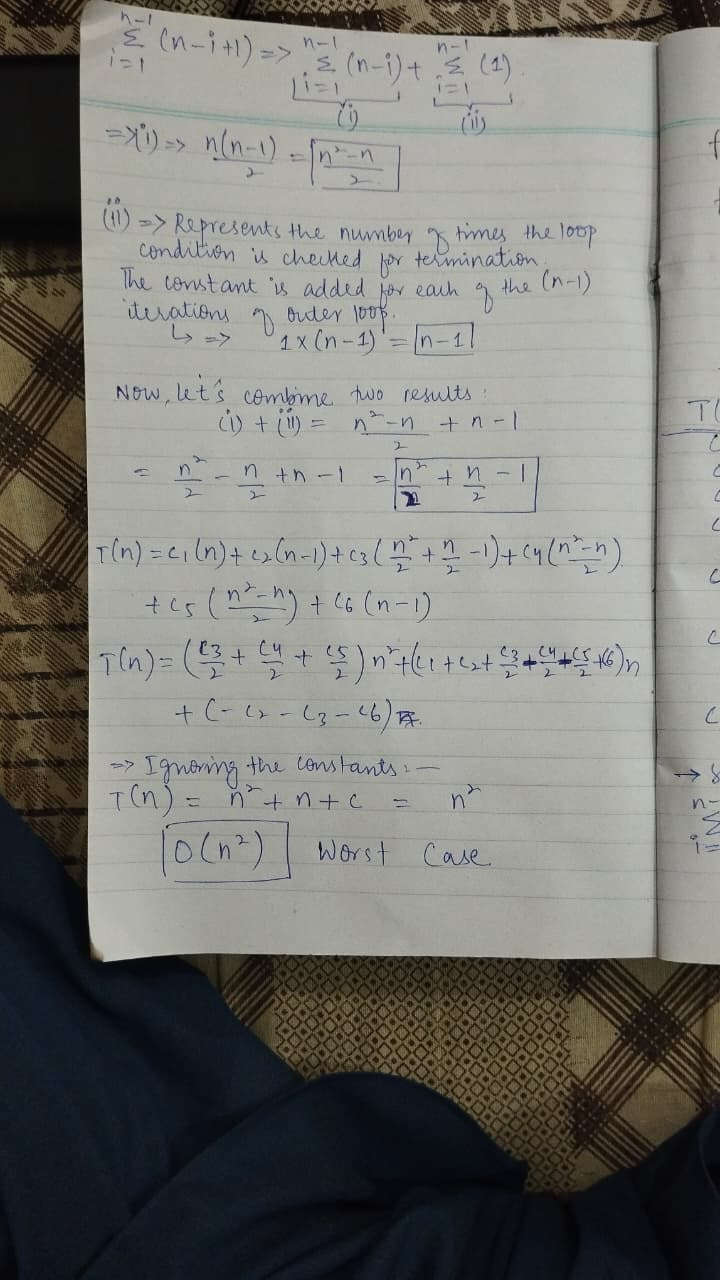 n-1
Σ (n-i+1) => n-1 Σ i=1 (n-i) + n-1 Σ i=1 (1).
i=1
(i) (ii)
=> (i) => n(n-1)/2 = n²-n/2
(ii) => Represents the number of times the loop
condition is checked for termination.
The constant is added for each of the (n-1)
iterations of outer loop.
↳ => 1 x (n-1) = n-1
Now, let's combine two results :
(i) + (ii) = n²-n/2 + n-1
= n²/2 - n/2 + n - 1 = n²/2 + n/2 - 1
T(n) = c1(n) + c2(n-1) + c3(n²/2 + n/2 - 1) + c4(n²-n/2)
+ c5(n²-n/2) + c6(n-1)
T(n) = (c3/2 + c4/2 + c5/2)n² + (c1 + c2 + c3/2 + c4/2 + c5/2 + c6)n
+ (-c2 - c3 - c6)
=> Ignoring the constants :-
T(n) = n² + n + c = n²
O(n²) Worst Case
T(
n-
Σ
i=